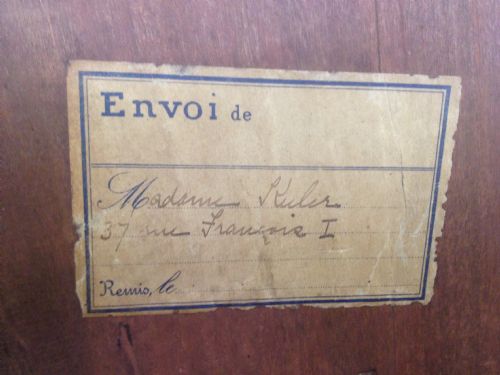 Envoi de
Madame Kuler
37 rue François I
Remis, le